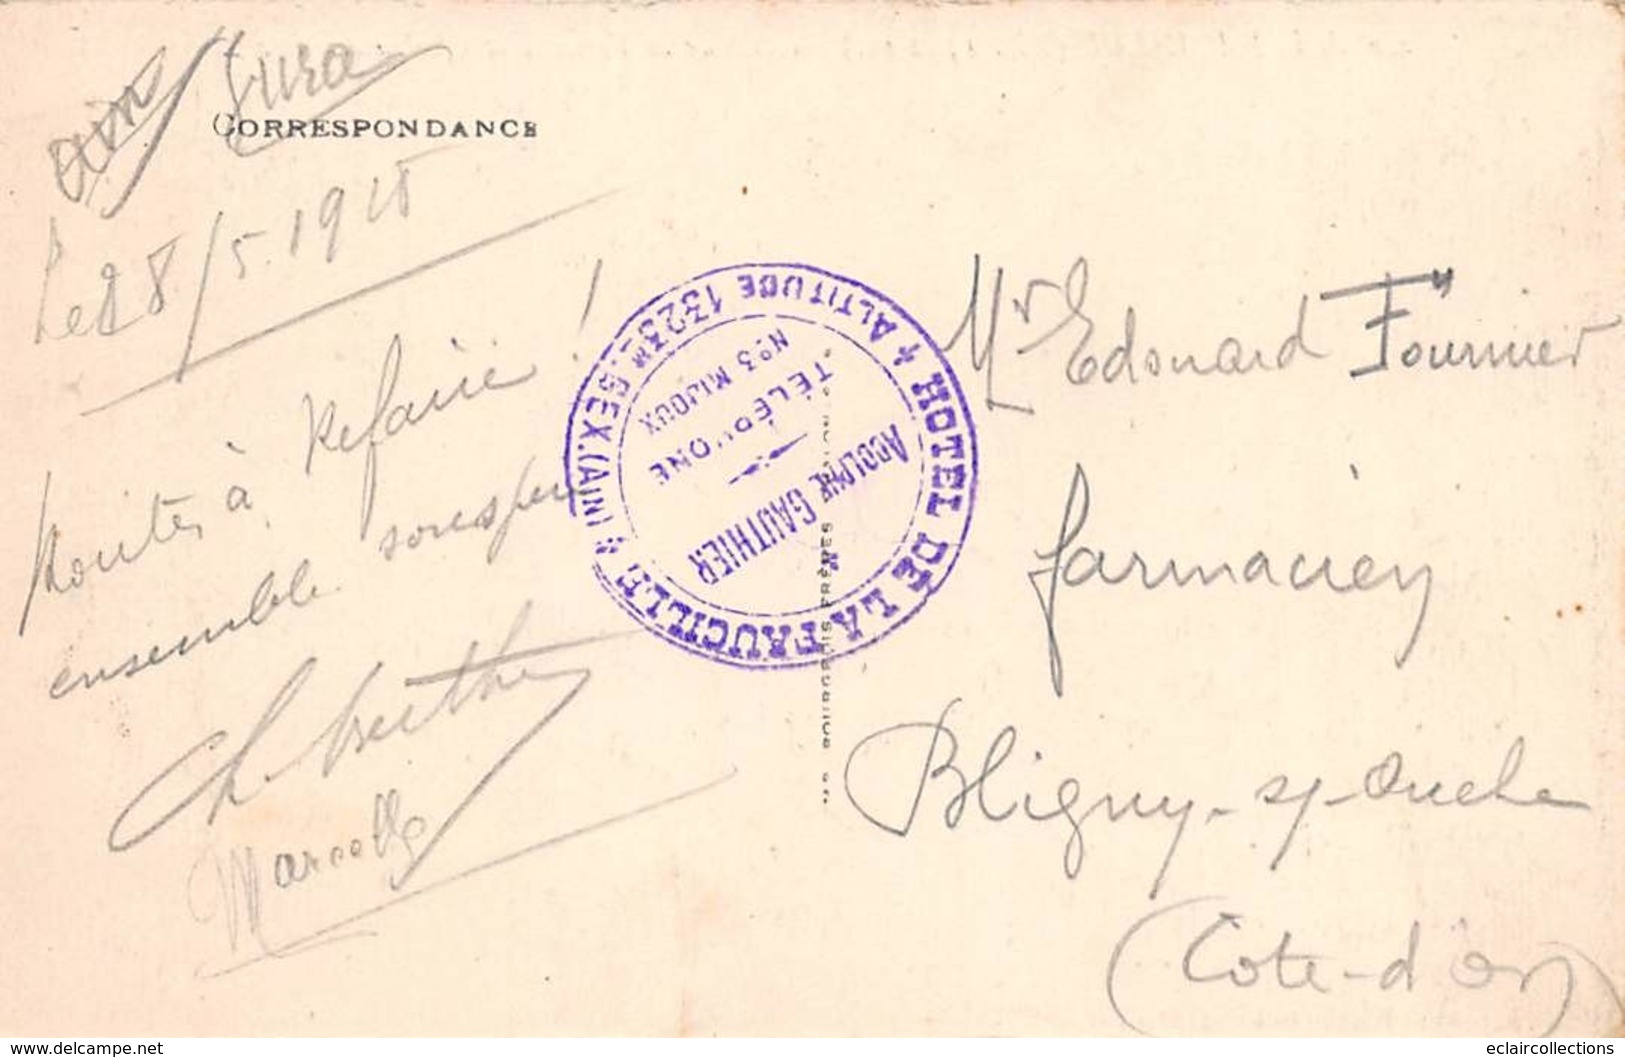 Jura
CORRESPONDANCE
Le 28/5.1915
Routes à Refaire !
ensemble
Ch. Berthe
Marcelle
HOTEL DE LA FAUCILLE
ALTITUDE 1323m. GEX.(AIN)
ADOLPHE GAUTHIER
TÉLÉPHONE
No3 MIJOUX
Mr Edouard Fournier
farmacien
Bligny-s/-Ouche
(Côte-d'Or)
www.delcampe.net
eclaircollections